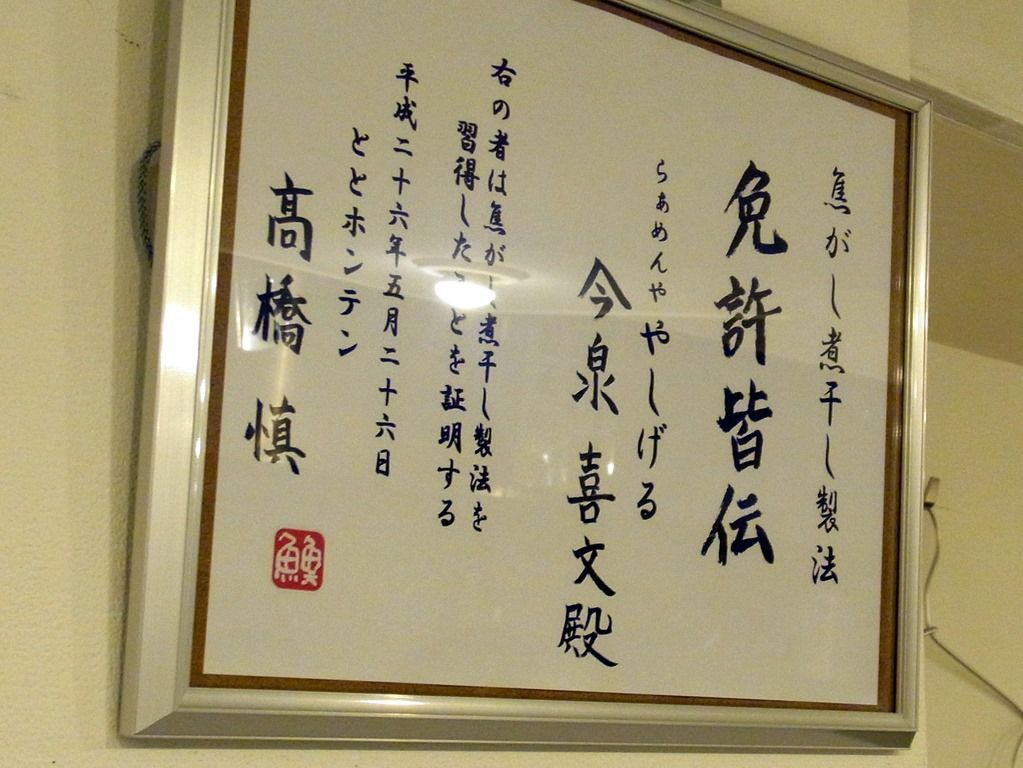 焦がし煮干し製法
免許皆伝
らぁめんや
やしげる
今泉 喜文殿
右の者は焦がし煮干し製法を
習得したことを証明する
平成二十六年五月二十六日
ととホンテン
髙橋 慎